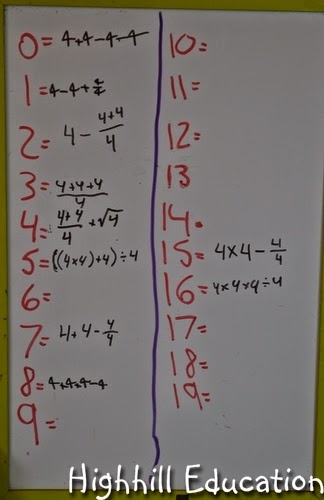 0= 4+4-4-4
1= 4-4+4/4
2= 4 - (4+4)/4
3= (4+4+4)/4
4= (4+4)/4 + √4
5= ((4×4)+4)÷4
6=
7= 4+4-4/4
8= 4+4+4-4
9=
10=
11=
12=
13
14.
15= 4×4-4/4
16= 4×4×4÷4
17=
18=
19=
Highhill Education